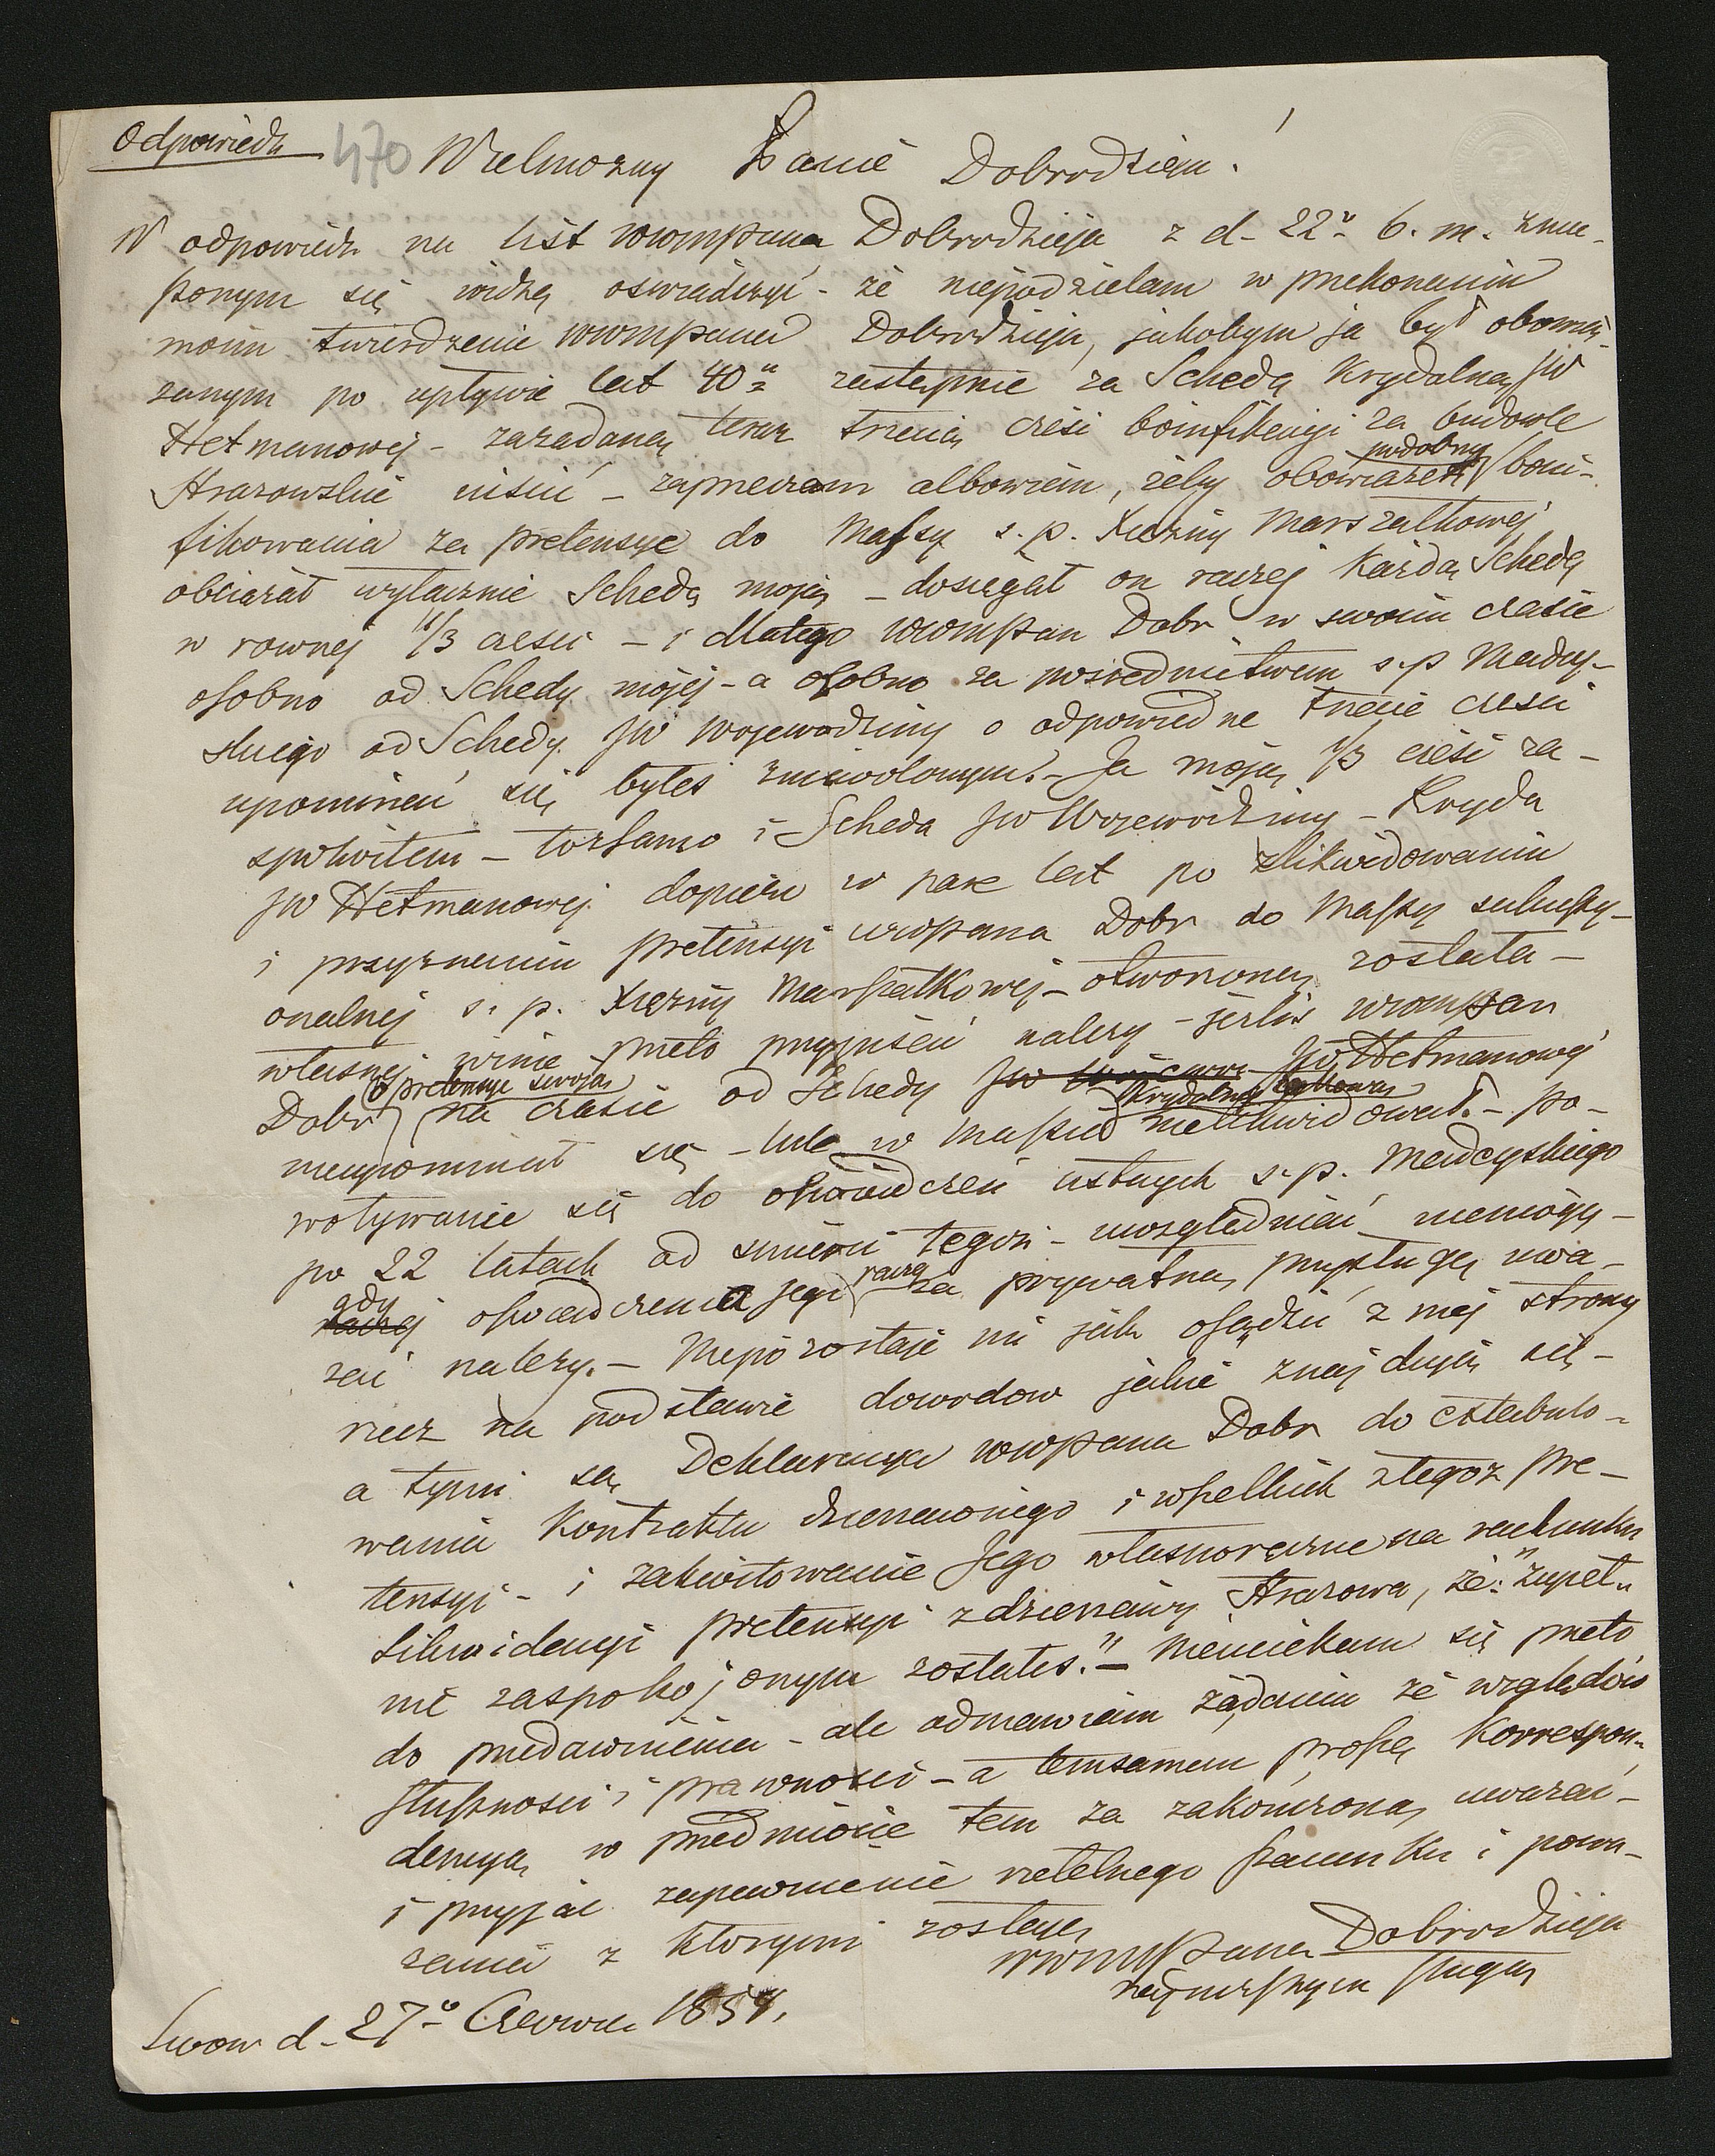 Odpowiedź
470 Wielmożny Panie Dobrodzieju!
W odpowiedzi na list WWmpana Dobrodzieja z d. 22° b. m. zmu-
szonym się widzę oświadczyć - że niepodzielam w przekonaniu
moim twierdzenie WWmpana Dobrodzieja, jakobym ja był obowią-
zanym po upływie lat 40u zastępnie za Schedą Krydalną JW
Hetmanowej - zażądaną teraz trzecią część bonifikacyi za budowle
Hrazowskie uiścić - zaprzeczam albowiem, żeby podobny obowiązek boni-
fikowania za pretensye do Massy s. p. Xiężny Marszałkowej
obciążał wyłącznie Schedę moją - dosięgał on raczej każdą Schedę
w równej 1/3 części - i dlatego WWmpan Dobr w swoim czasie
osobno od Schedy mojej - a osobno za pośrednictwem s. p Madey-
skiego od Schedy JW Wojewodziny o odpowiedne trzecie części
upominać się byłeś zniewolonym. - Ja moją 1/3 część za-
spokoiłem - toż samo i Scheda JW Wojewodziny - Kryda
JW Hetmanowej dopiero w parę lat po zlikwidowaniu
i przyznaniu pretensyi WWpana Dobr do Massy subhasty-
onalnej s. p. Xiężny Marszałkowej - otworzoną została -
własnej winie przeto przypisać należy - jeżliś WWmpan
Dobr o pretensye swoją na czasie od Schedy JW Hetmanowej
nieupominał się - lub w Massie krydalnej nielikwidował. - Po-
woływanie się do oświadczeń ustnych s. p. Madeyskiego
po 22 latach od śmierci tegoż - uwzględniać niemogę -
gdy oświadczenia jego raczej za prywatną przysługę uwa-
żać należy. - Niepozostaje mi jak osądzić z mej strony
rzecz na podstawie dowodów jakie znajdują się -
a tymi są Deklaracya WWpana Dobr do extabulo-
wania Kontraktu dzierżawnego i wszelkich ztegoż pre-
tensyi - i zakwitowanie Jego własnoręczne na rachunku
Likwidacyi pretensyi z dzierżawy Hrazowa, że: "zupeł-
nie zaspokojonym zostałeś." - Nieuciekam się przeto
do przedawnienia - ale odmawiam żądaniu ze względów
słuszności i prawności - a temsamem proszę Korrespon-
dencyą w przedmiocie tem za zakończoną uważać -
i przyjąć zapewnienie rzetelnego szacunku i powa-
żania z którymi zostaję
WWmpana Dobrodzieja
najniższym sługą
Lwow d. 27° Czerwca 1854.